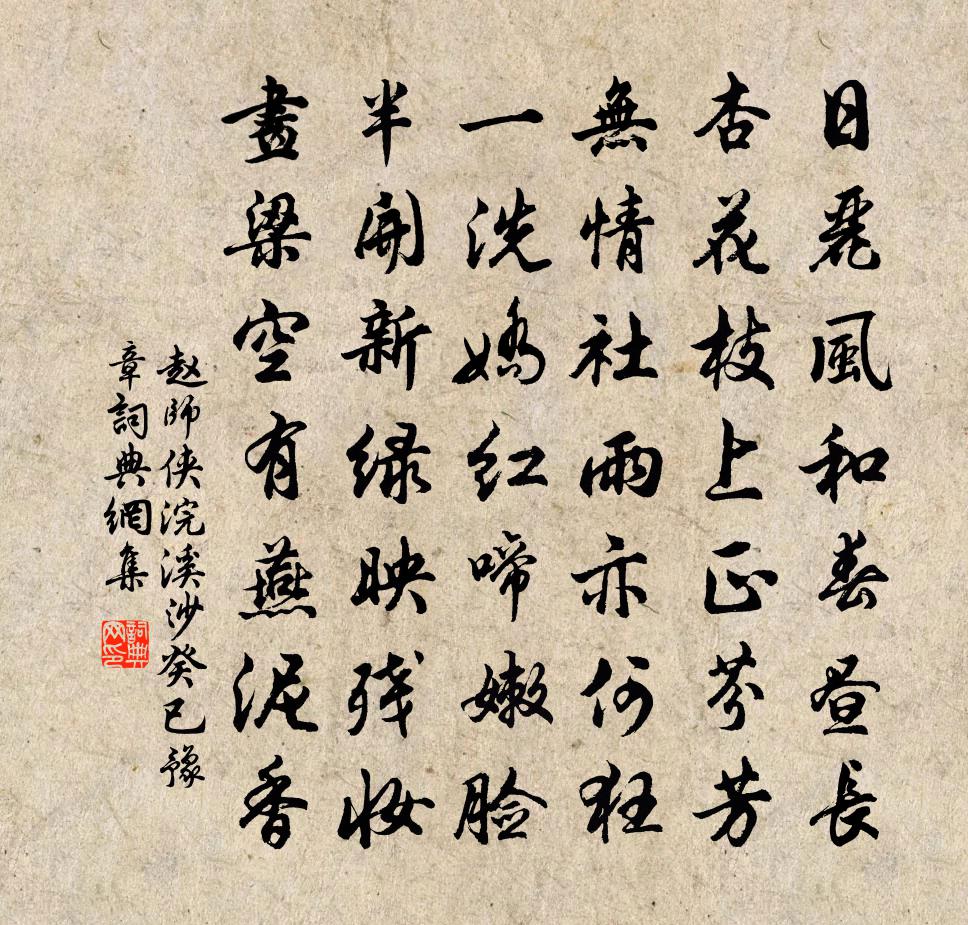 日麗風和春晝長
杏花枝上正芬芳
無情社雨亦何狂
一洗嬌紅啼嫩臉
半開新綠映殘妝
畫梁空有燕泥香
赵師侠浣溪沙癸巳豫
章詞典網集
詞典
网印